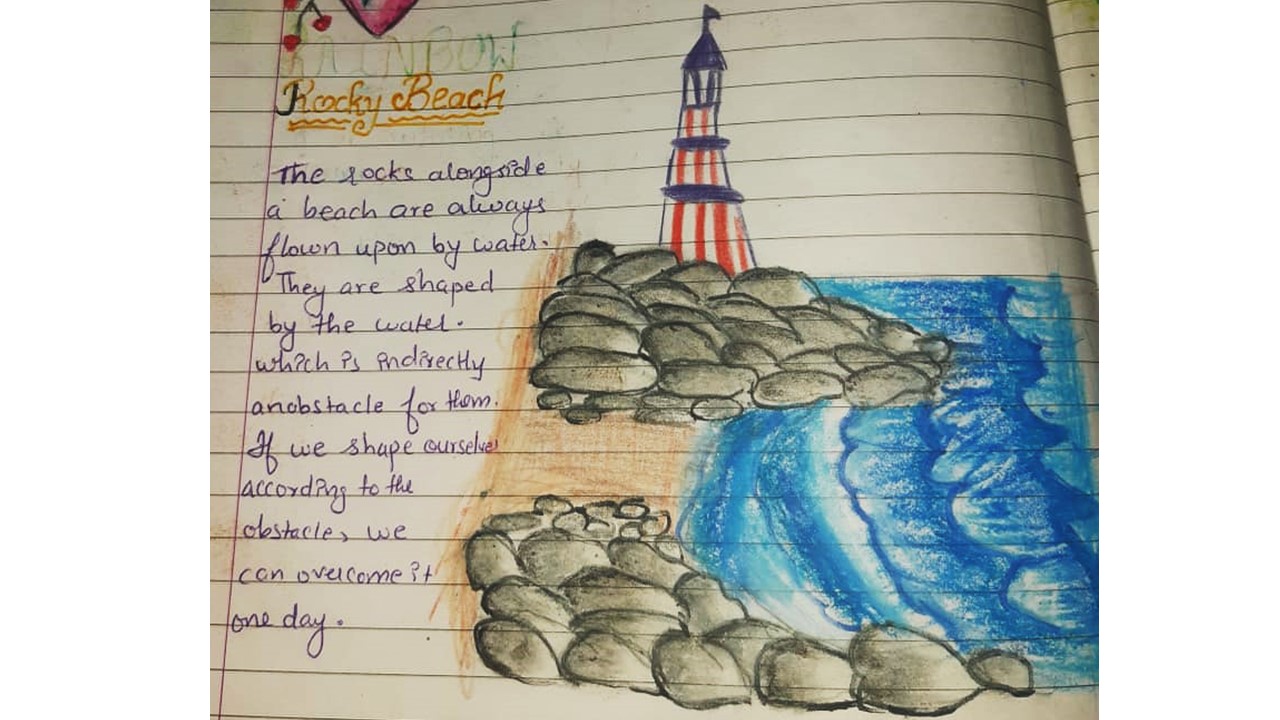 RAINBOW
Rocky Beach
The rocks alongside
a beach are always
flown upon by water.
They are shaped
by the water.
which is indirectly
anobstacle for them.
If we shape ourselves
according to the
obstacle, we
can overcome it
one day.